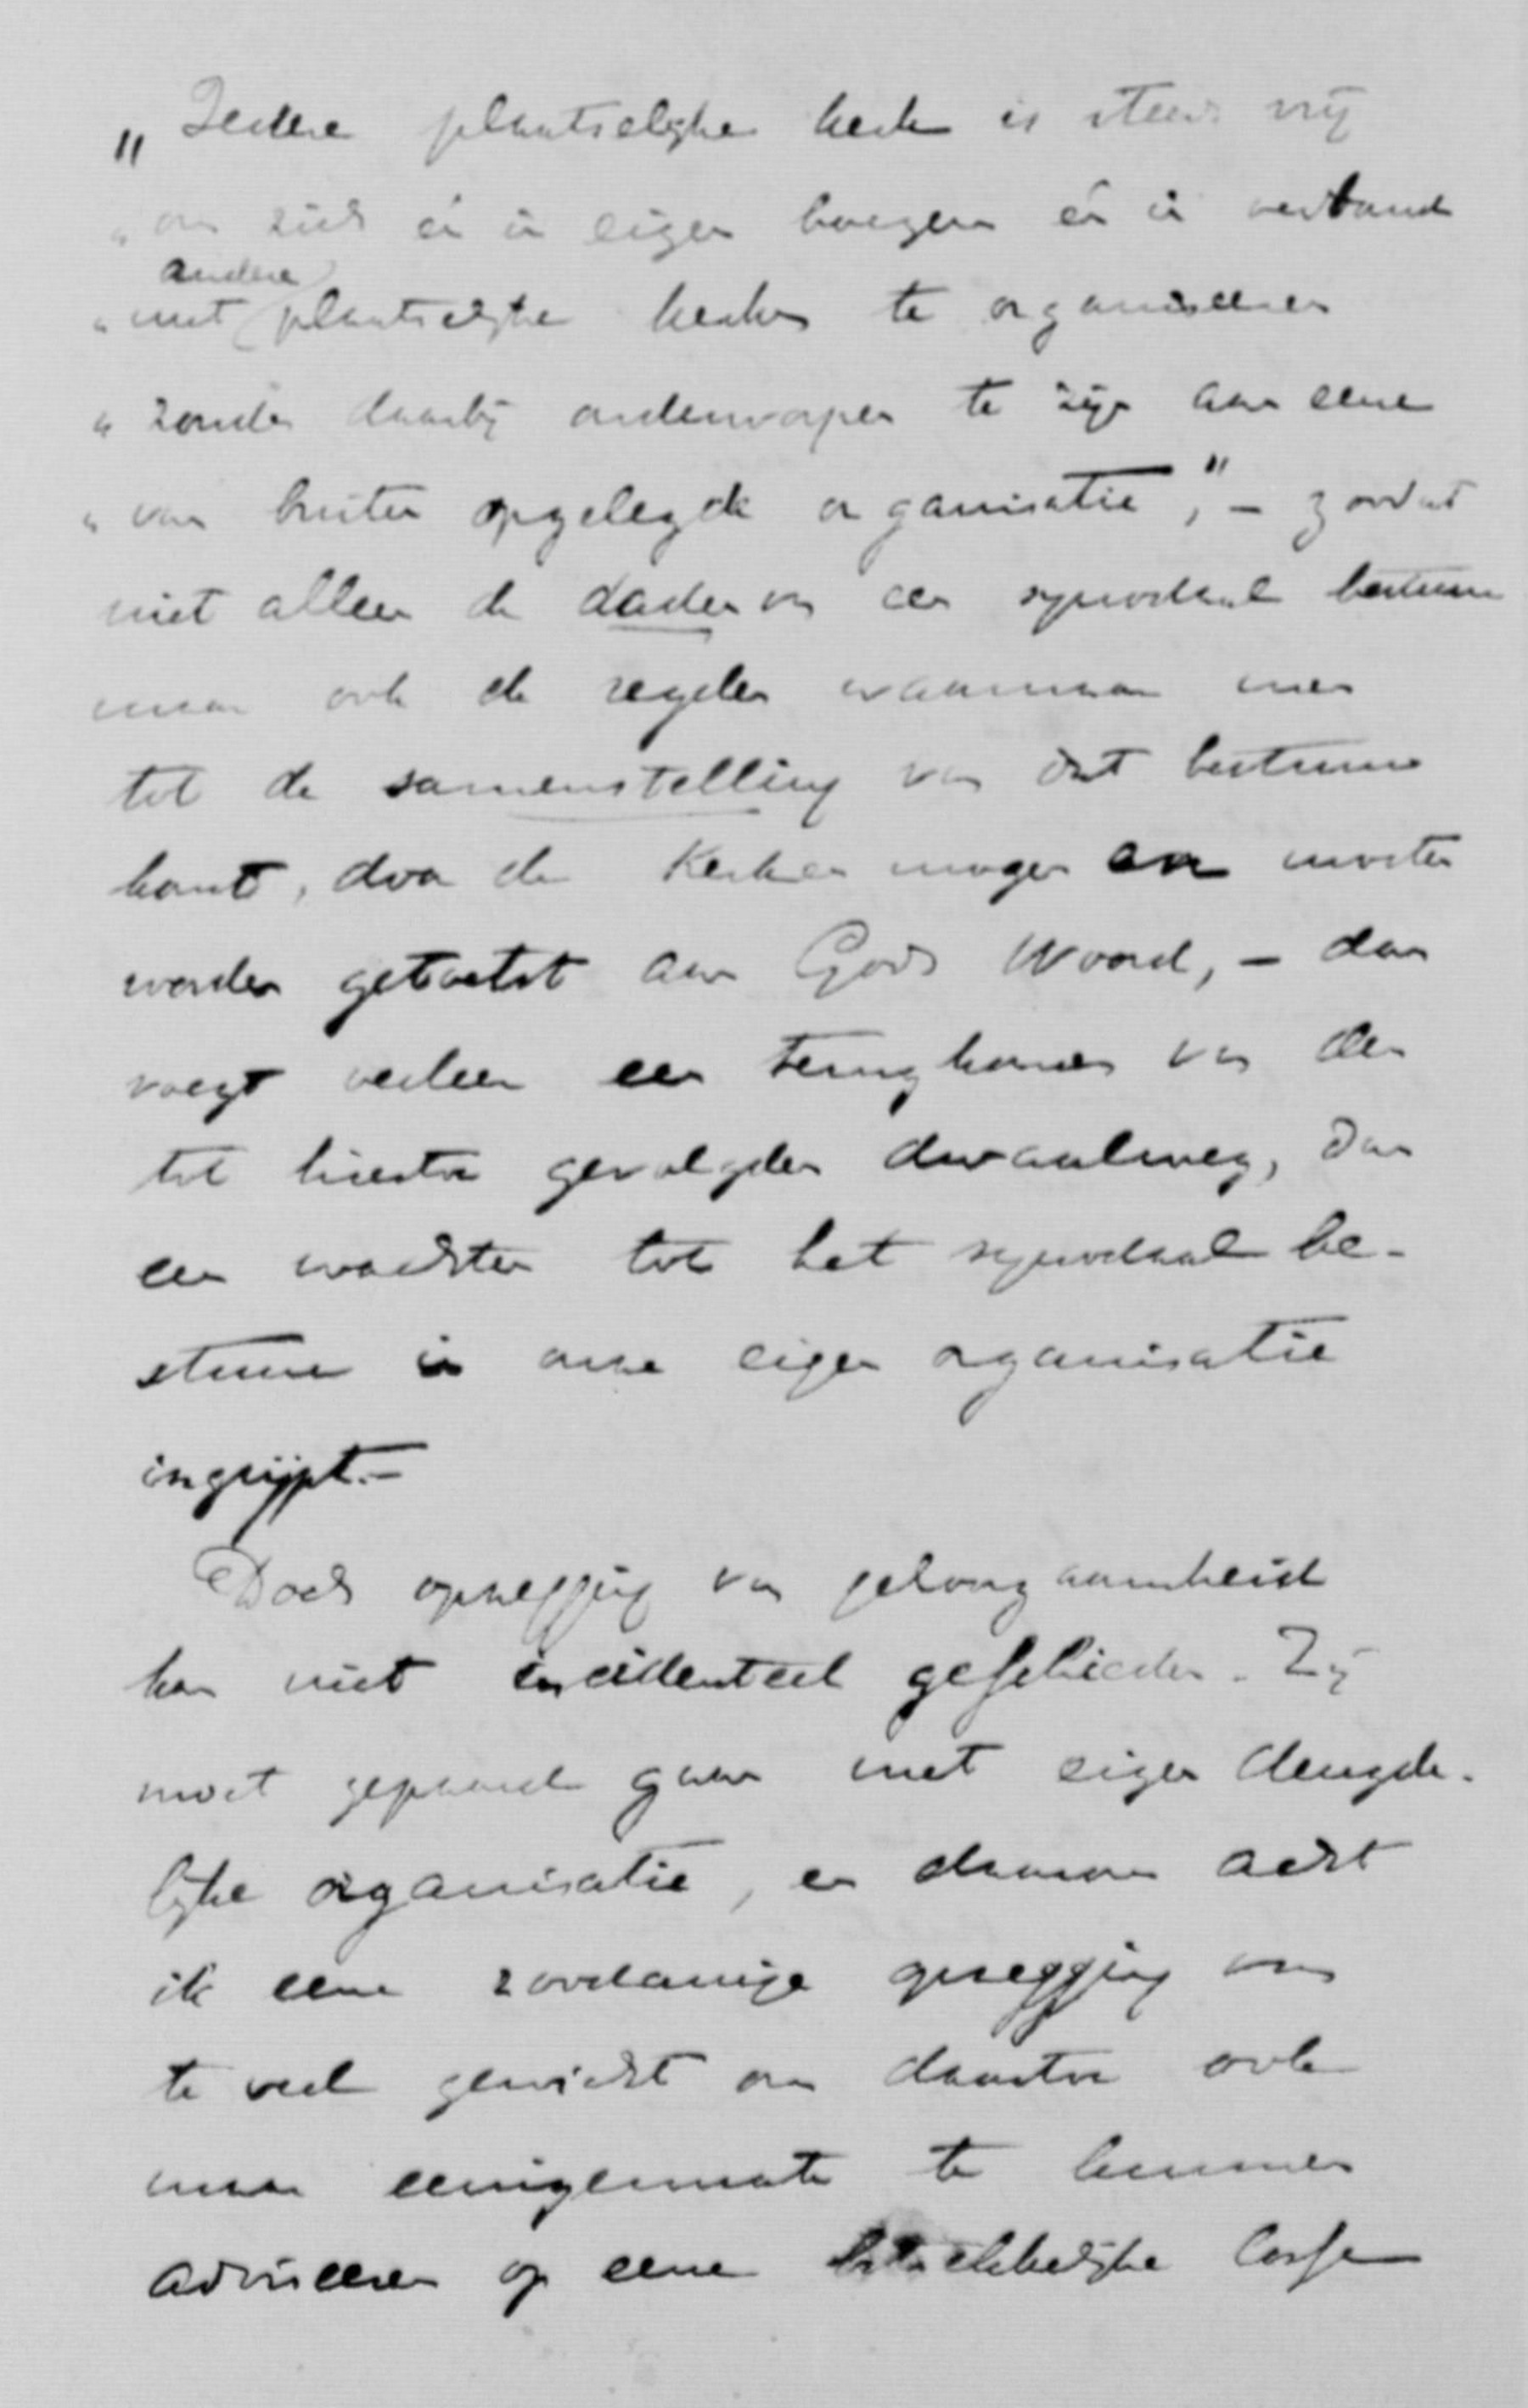 „Iedere plaatselijke kerk is steeds vrij
„om zich én in eigen boezem én in verband
„met andere plaatselijke kerken te organiseeren
„zonder daarbij onderworpen te zijn aan eene
„van buiten opgelegde organisatie," – zoodat
niet alleen de daden van een synodaal bestuur
maar ook de regelen waarnaar men
tot de samenstelling van dat bestuur
komt, door de Kerken mogen en moeten
worden getoetst aan Gods Woord, – dan
voegt veeleer een terugkomen van den
tot hiertoe gevolgden dwaalweg, dan
een wachten tot het synodaal be-
stuur in onze eigen organisatie
ingrijpt. –
Doch opzegging van gehoorzaamheid
kan niet incidenteel geschieden. Zij
moet gepaard gaan met eigen deugde-
lijke organisatie, en daarom acht
ik eene zoodanige opzegging van
te veel gewicht om daartoe ook
maar eenigermate te kunnen
adviseeren op eene betrekkelijke losse